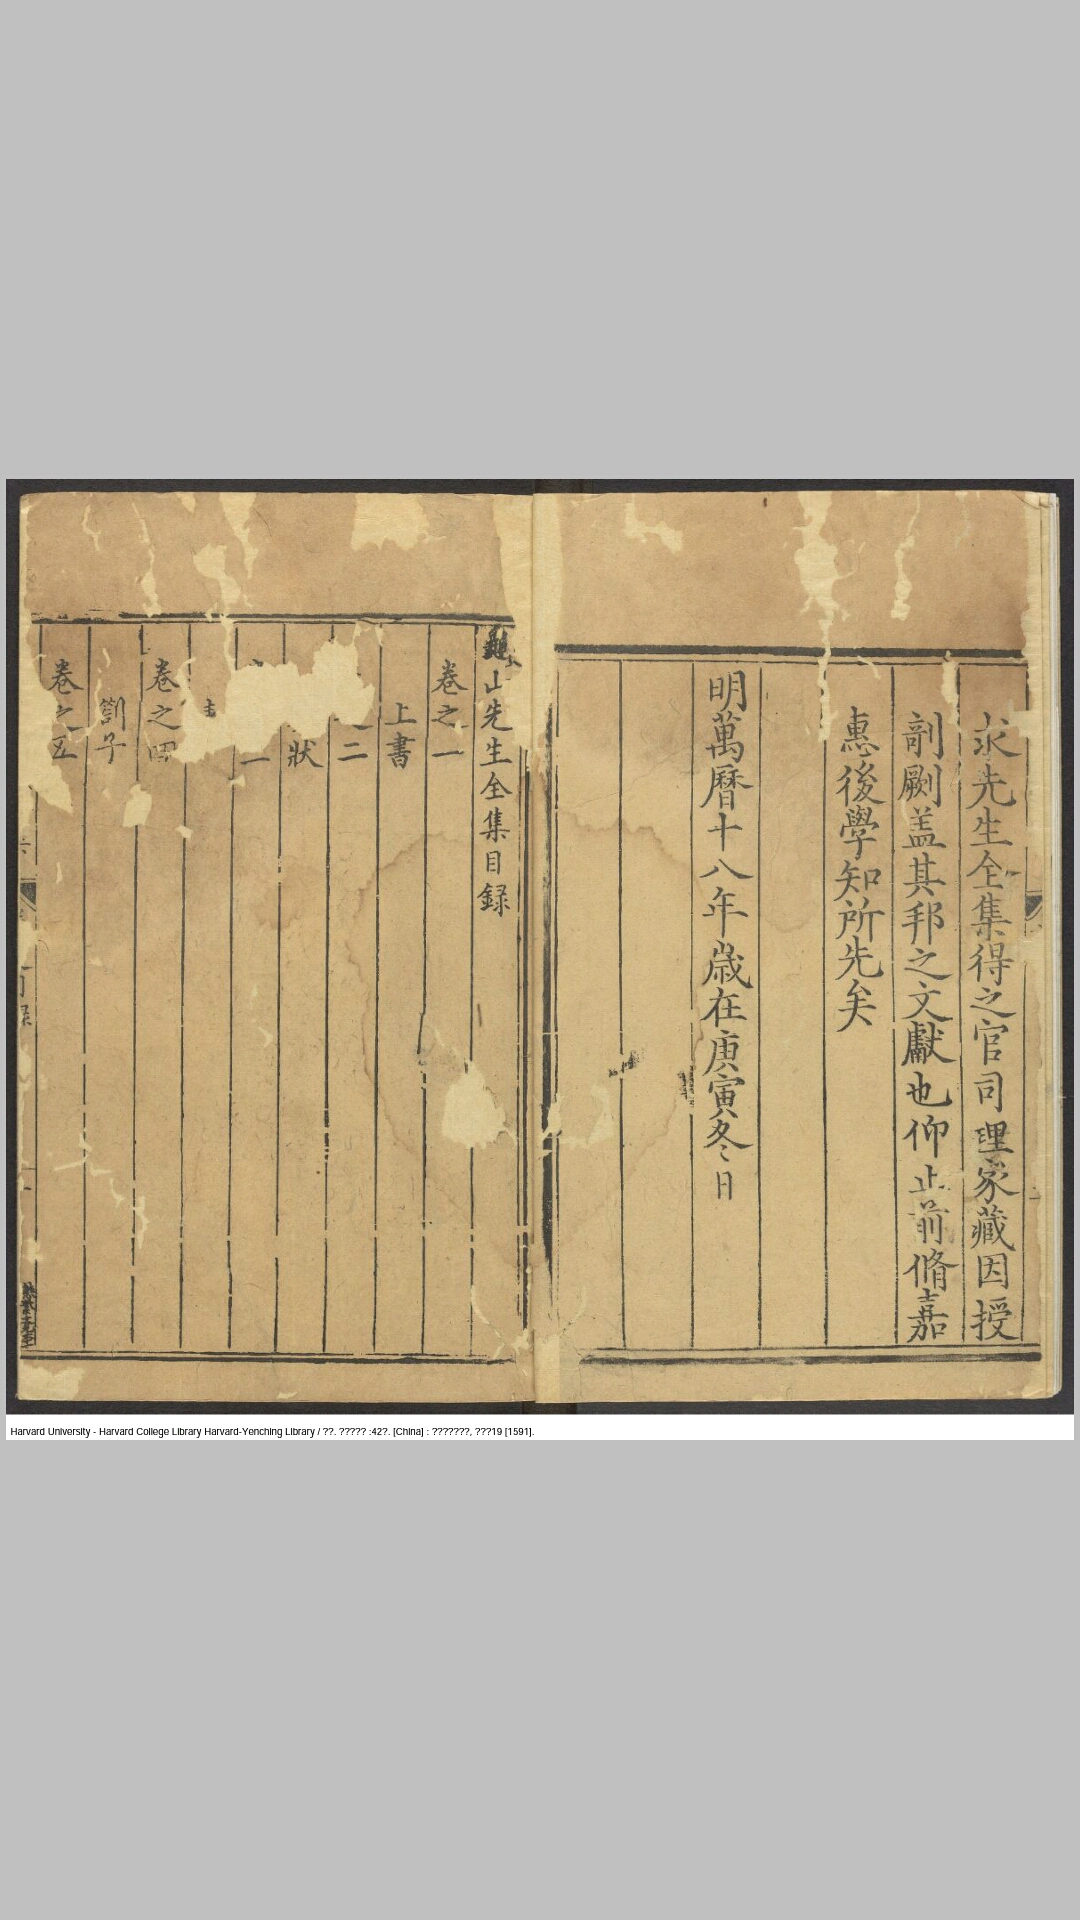 求先生全集得之官司理家藏因授
剞劂盖其邦之文獻也仰止前脩嘉
惠後學知所先矣
明萬曆十八年歲在庚寅冬日
龜山先生全集目録
卷之一
上書
二
狀
一
卷之四
劄子
卷之五
Harvard University - Harvard College Library Harvard-Yenching Library / ??. ????? :42?. [China] : ???????, ???19 [1591].